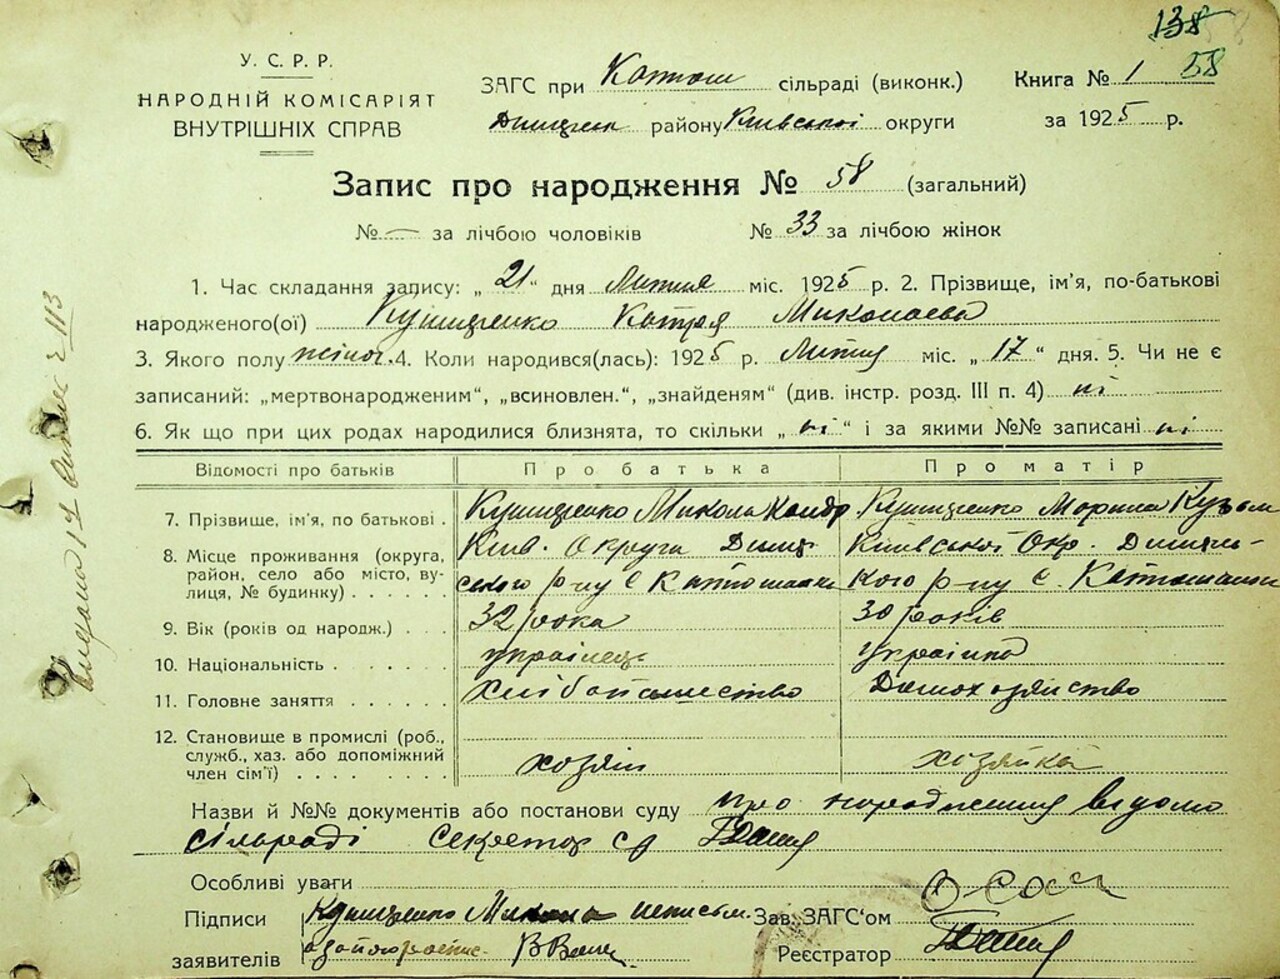 138
58
У. С. Р. Р.
НАРОДНІЙ КОМІСАРІЯТ
ВНУТРІШНІХ СПРАВ
ЗАГС при сільраді (виконк.)
району Київської округи
Книга № 1
за 1925 р.
Запис про народження № 58 (загальний)
№ — за лічбою чоловіків № 33 за лічбою жінок
1. Час складання запису: „ 21 “ дня Лютня міс. 1925 р. 2. Прізвище, ім'я, по-батькові
народженого(ої) Кущенко Катря Миколаева
3. Якого полу жіноч. 4. Коли народився(лась): 1925 р. Лютня міс. „ 17 “ дня. 5. Чи не є
записаний: „мертвонародженим“, „всиновлен.“, „знайденям“ (див. інстр. розд. III п. 4) ні
6. Як що при цих родах народилися близнята, то скільки „ ні “ і за якими №№ записані ні
Відомості про батьків Про батька Про матір
7. Прізвище, ім'я, по батькові . Кущенко Микола Кущенко
8. Місце проживання (округа, Київ. Округа Київської Окр.
район, село або місто, ву- ського р-ну с кого р-ну с.
лиця, № будинку) . . . . . .
9. Вік (років од народж.) . . . 32 рока 30 років
10. Національність . . . . . . українець українка
11. Головне заняття . . . . . . Домохозяйство
12. Становище в промислі (роб.,
служб., хаз. або допоміжний
член сім'ї) . . . . . . . . . хозяін хозяйка
Назви й №№ документів або постанови суду про народження відомо
сільраді Секретар
Особливі уваги
Підписи Кущенко Микола неписьм. Зав. ЗАГС'ом
заявителів Реєстратор